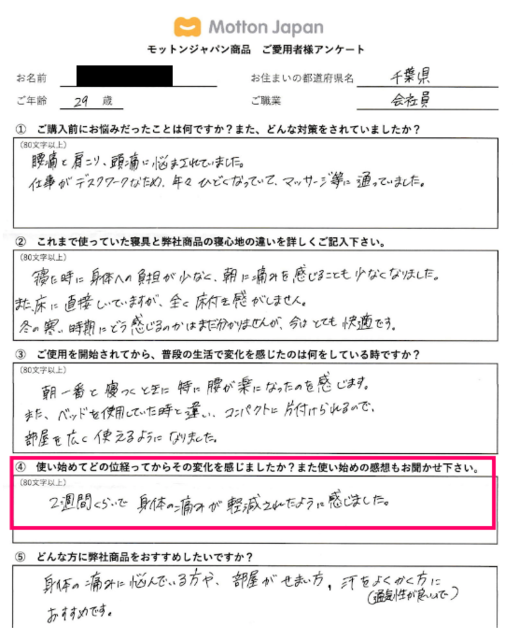 Motton Japan
モットンジャパン商品 ご愛用者様アンケート
お名前
お住まいの都道府県名 千葉県
ご年齢 29 歳
ご職業 会社員
① ご購入前にお悩みだったことは何ですか？また、どんな対策をされていましたか？
(80文字以上)
腰痛と肩こり、頭痛に悩まされていました。
仕事がデスクワークなため、年々ひどくなっていて、マッサージ等に通っていました。
② これまで使っていた寝具と弊社商品の寝心地の違いを詳しくご記入下さい。
(80文字以上)
寝た時に身体への負担が少なく、朝に痛みを感じることも少なくなりました。
また、床に直接しいていますが、全く床付き感がしません。
冬の寒い時期にどう感じるのかはまだ分かりませんが、今はとても快適です。
③ ご使用を開始されてから、普段の生活で変化を感じたのは何をしている時ですか？
(80文字以上)
朝一番と寝つくときに特に腰が楽になったのを感じます。
また、ベッドを使用していた時と違い、コンパクトに片付けられるので、
部屋を広く使えるようになりました。
④ 使い始めてどの位経ってからその変化を感じましたか？また使い始めの感想もお聞かせ下さい。
(80文字以上)
2週間くらいで身体の痛みが軽減されたように感じました。
⑤ どんな方に弊社商品をおすすめしたいですか？
(80文字以上)
身体の痛みに悩んでいる方や、部屋がせまい方、汗をよくかく方に
(通気性が良いので)
おすすめです。